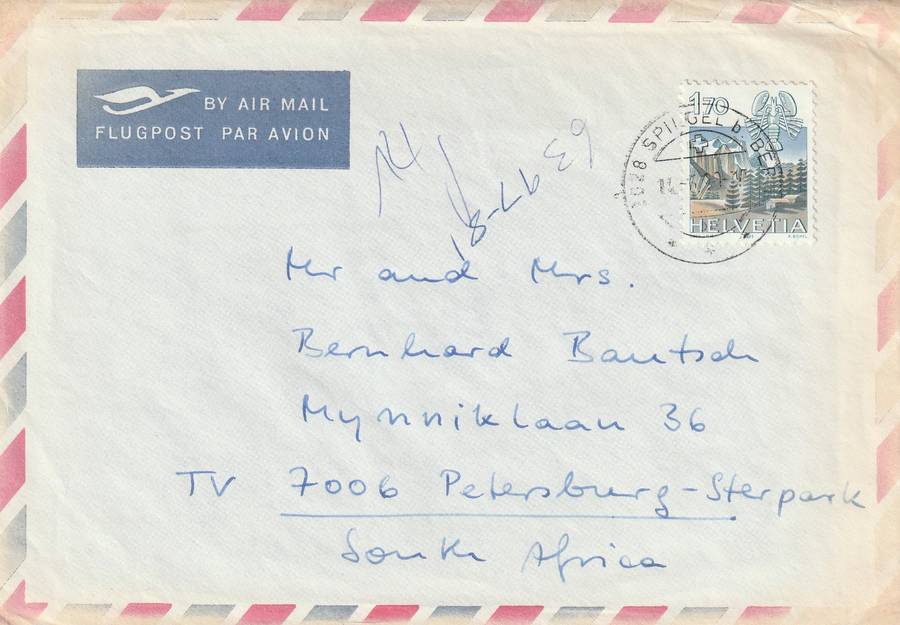 BY AIR MAIL
FLUGPOST PAR AVION
1.70
3028 SPIEGEL b. BERN
HELVETIA
Mr and Mrs.
Bernhard Bautsch
Mynniklaan 36
TV 7006 Petersburg-Sterpark
South Africa